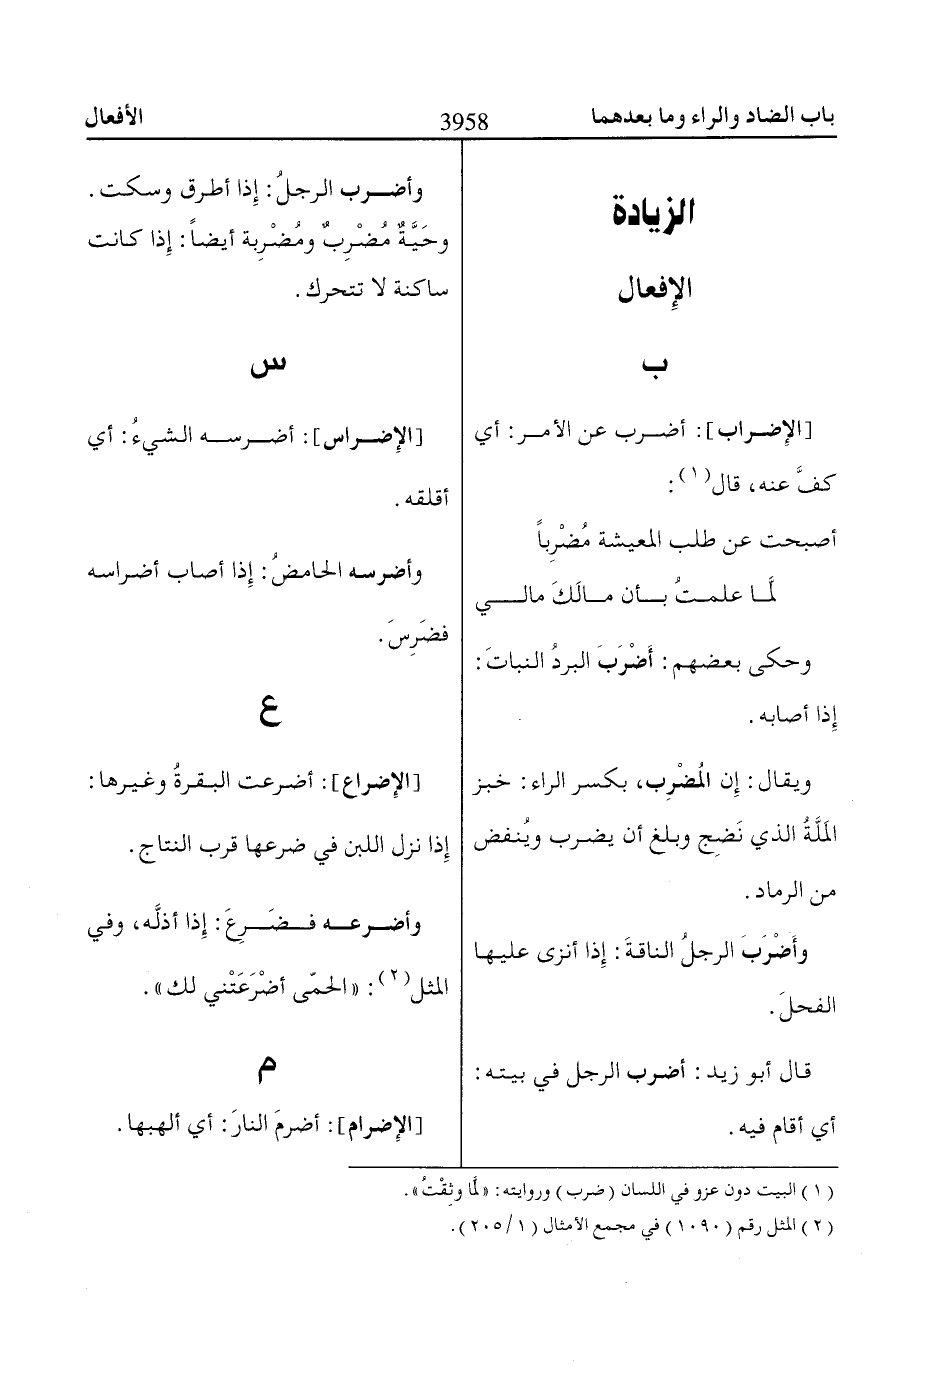 باب الضاد والراء وما بعدهما
3958
الأفعال
الزيادة
الإِفعال
ب
[الإِضراب]: أضرب عن الأمر: أي
كفَّ عنه، قال(١):
أصبحت عن طلب المعيشة مُضْرِباً
لَمّا علمتُ بأن مالَكَ مالي
وحكى بعضهم: أَضْرَبَ البردُ النباتَ:
إِذا أصابه.
ويقال: إِن المُضْرِب، بكسر الراء: خبز
المَلَّةُ الذي نَضِج وبلغ أن يضرب ويُنفض
من الرماد.
وأَضْرَبَ الرجلُ الناقةَ: إِذا أنزى عليها
الفحلَ.
قال أبو زيد: أضرب الرجل في بيته:
أي أقام فيه.
وأضرب الرجلُ: إِذا أطرق وسكت.
وحَيَّةٌ مُضْرِبٌ ومُضْرِبة أيضاً: إِذا كانت
ساكنة لا تتحرك.
س
[الإِضراس]: أضرسه الشيءُ: أي
أقلقه.
وأضرسه الحامضُ: إِذا أصاب أضراسه
فضَرِسَ.
ع
[الإِضراع]: أضرعت البقرةُ وغيرها:
إِذا نزل اللبن في ضرعها قرب النتاج.
وأضرعه فضَرِعَ: إِذا أذلَّه، وفي
المثل(٢): «الحمّى أضْرَعَتْني لك».
م
[الإِضرام]: أضرمَ النارَ: أي ألهبها.
(١) البيت دون عزو في اللسان (ضرب) وروايته: «لَمّا وثِقْتُ».
(٢) المثل رقم (١٠٩٠) في مجمع الأمثال (١/٢٠٥).